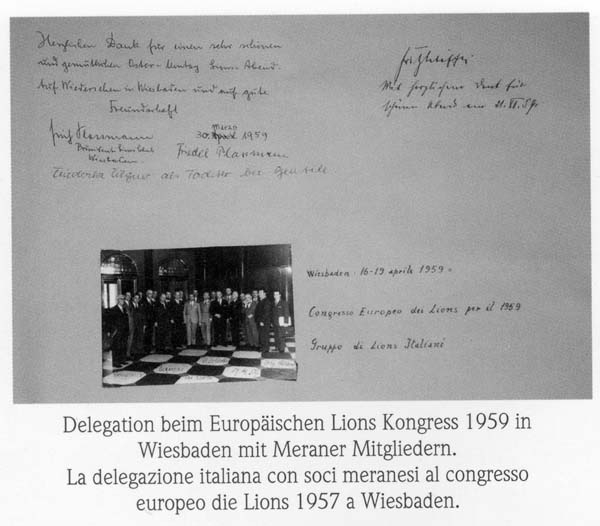 Herzlichen Dank für einen sehr schönen
und gemütlichen Oster-Montag Lions-Abend.
Auf Wiedersehen in Wiesbaden und auf gute
Freundschaft
Plassmann
30. März April 1959
Präsident Lionsclub
Wiesbaden.
Friedel Plassmann
als Tochter
Mit herzlichem Dank für
schönen Abend am
Wiesbaden 16-19 aprile 1959.
Congresso Europeo dei Lions per il 1959
Gruppo di Lions Italiani
Delegation beim Europäischen Lions Kongress 1959 in
Wiesbaden mit Meraner Mitgliedern.
La delegazione italiana con soci meranesi al congresso
europeo die Lions 1957 a Wiesbaden.